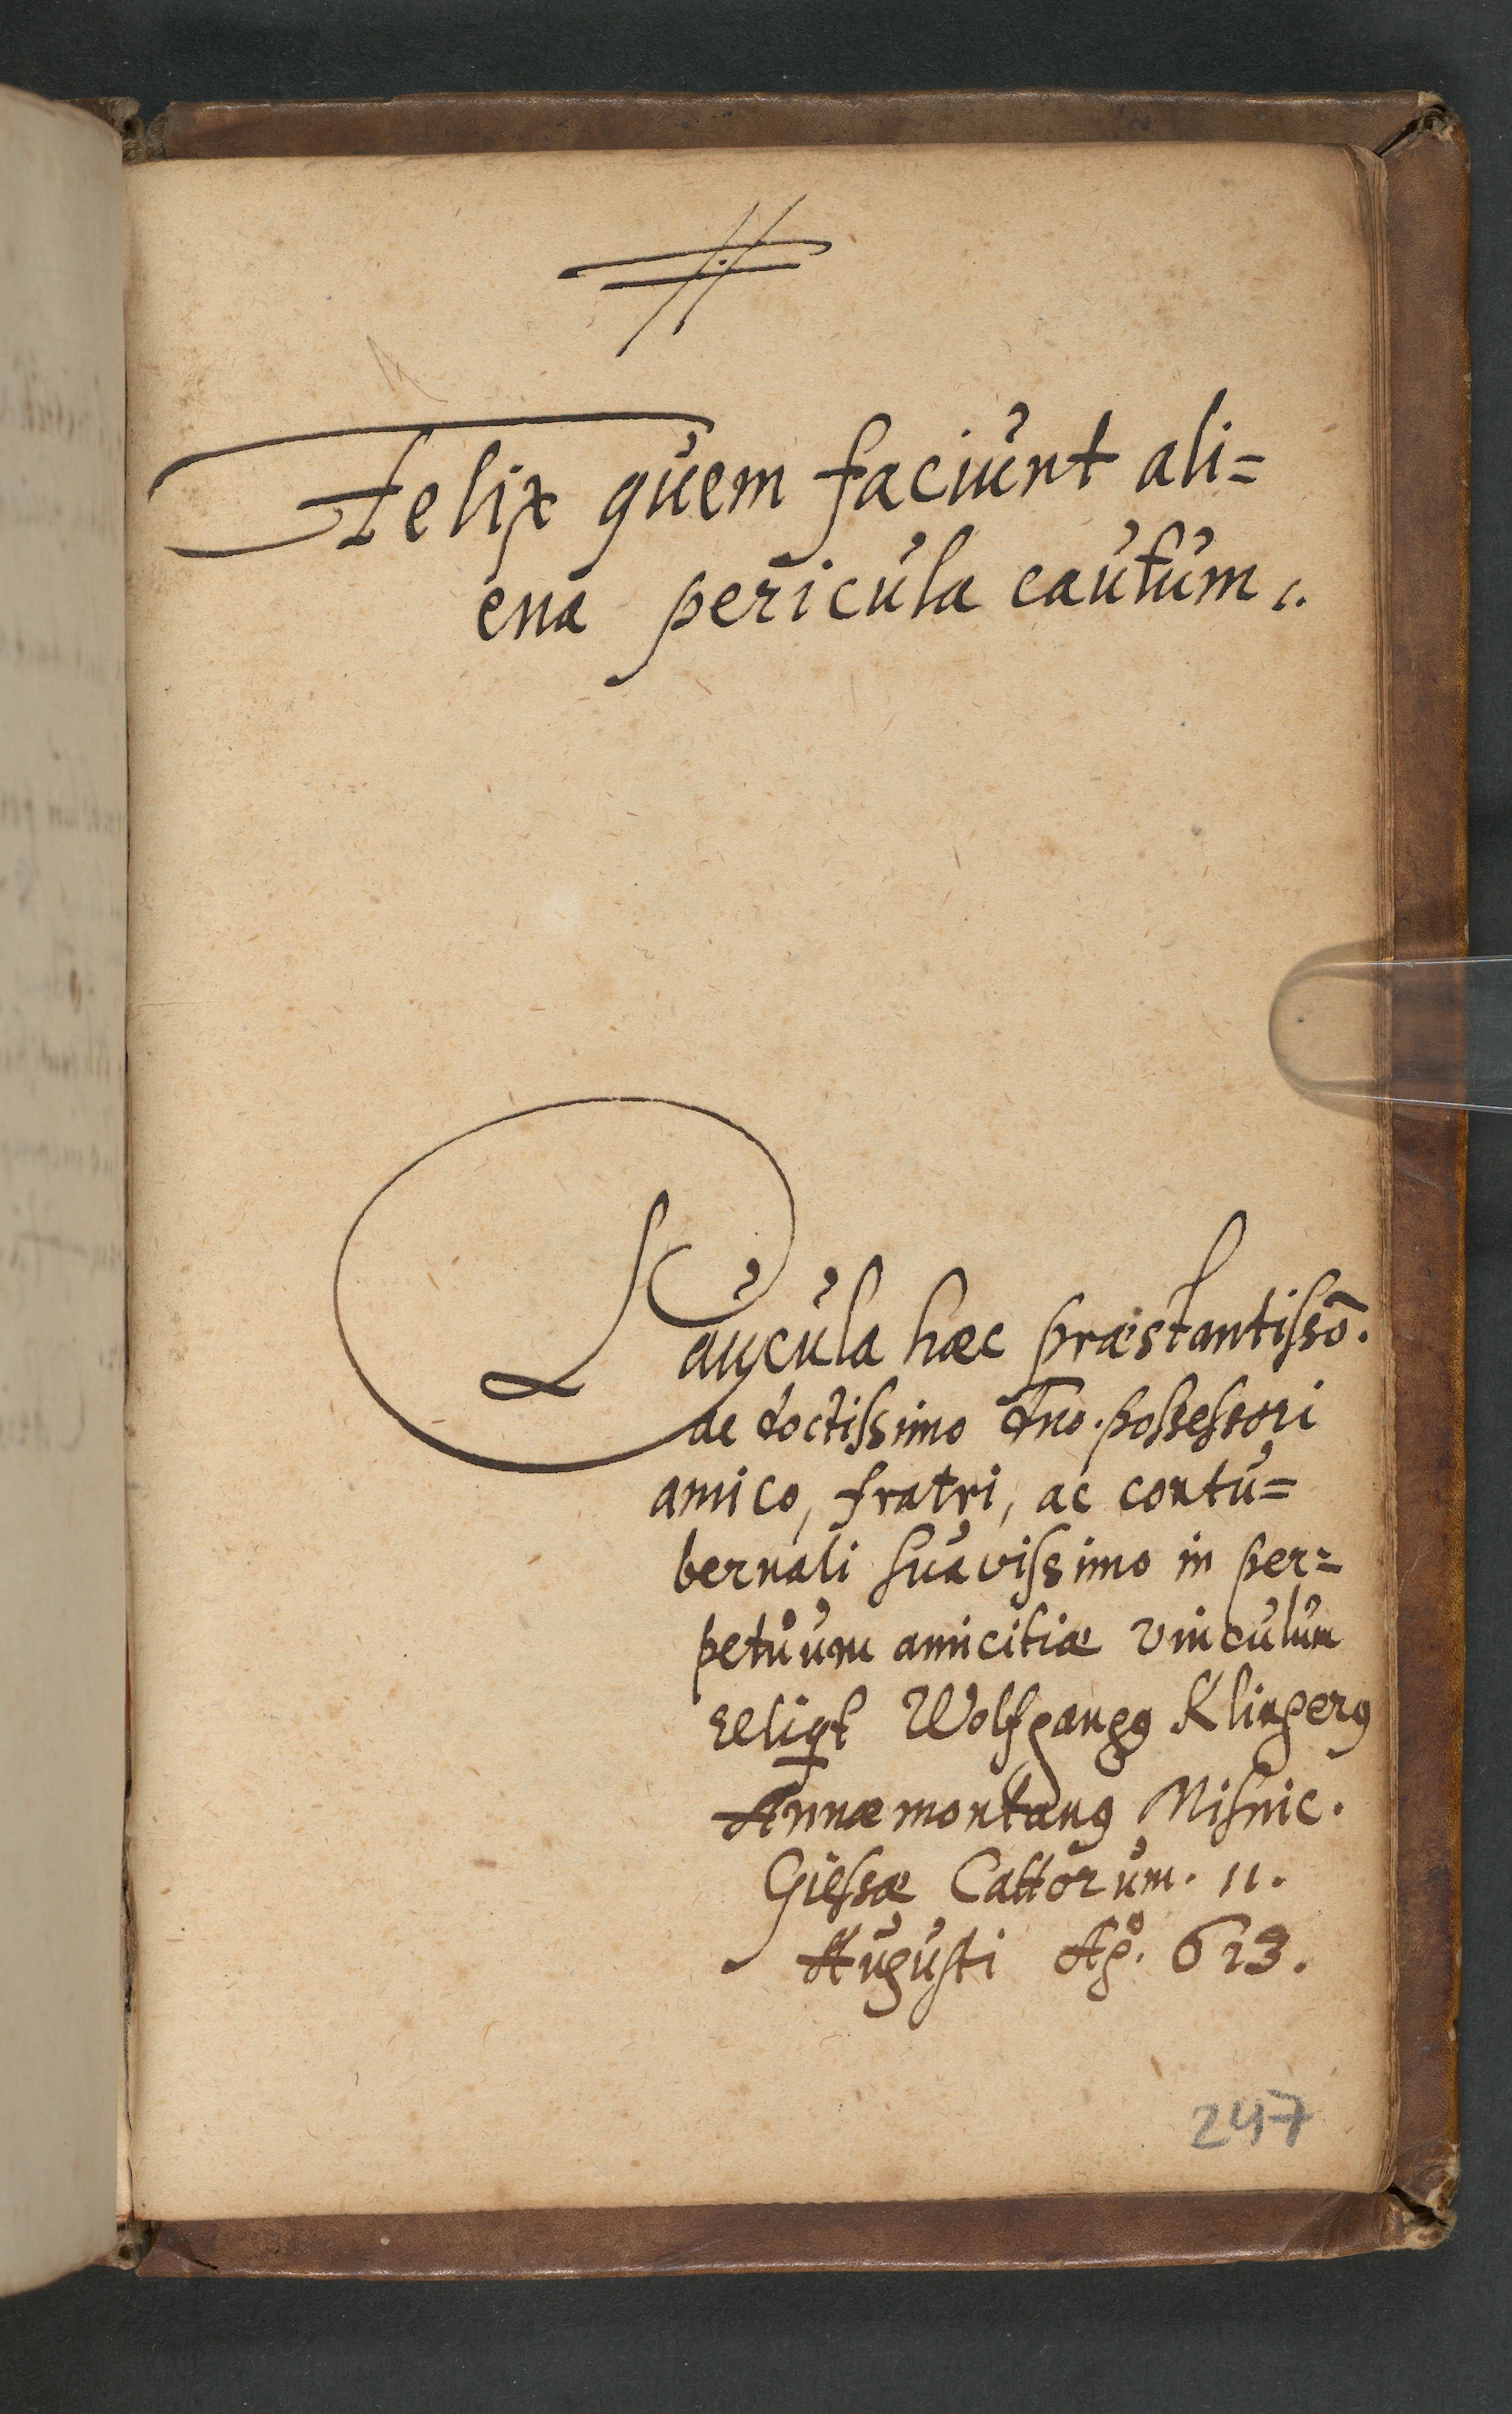 Felix quem faciunt ali=
ena pericula cautum.
Paucula hæc præstantissō.
ac doctissimo Dno. possessori
amico, fratri, ac contu=
bernali suavissimo in per=
petuum amicitiæ vinculum
reliqt Wolfgangꝰ Klingerꝰ
Annæmontanꝰ Misnic.
Giessæ Cattorum. 11.
Augusti Aō. 613.
247